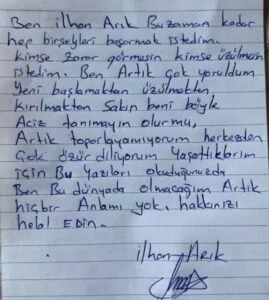 Ben ilhan Arık Bu zaman kadar
hep birşeyleri başarmak istedim.
kimse zarar görmesin kimse üzülmesin
istedim. Ben Artık çok yoruldum
Yeni başlamaktan üzülmekten
kırılmaktan Sakın beni böyle
Aciz tanımayın olurmu,
Artık toparlayamıyorum herkezden
Çok özür diliyorum Yaşattıklarım
için Bu Yazıları okuduğunuzda
Ben Bu dünyada olmacağım Artık
hiçbir Anlamı yok, hakkınızı
helal EDin.
ilhan Arık